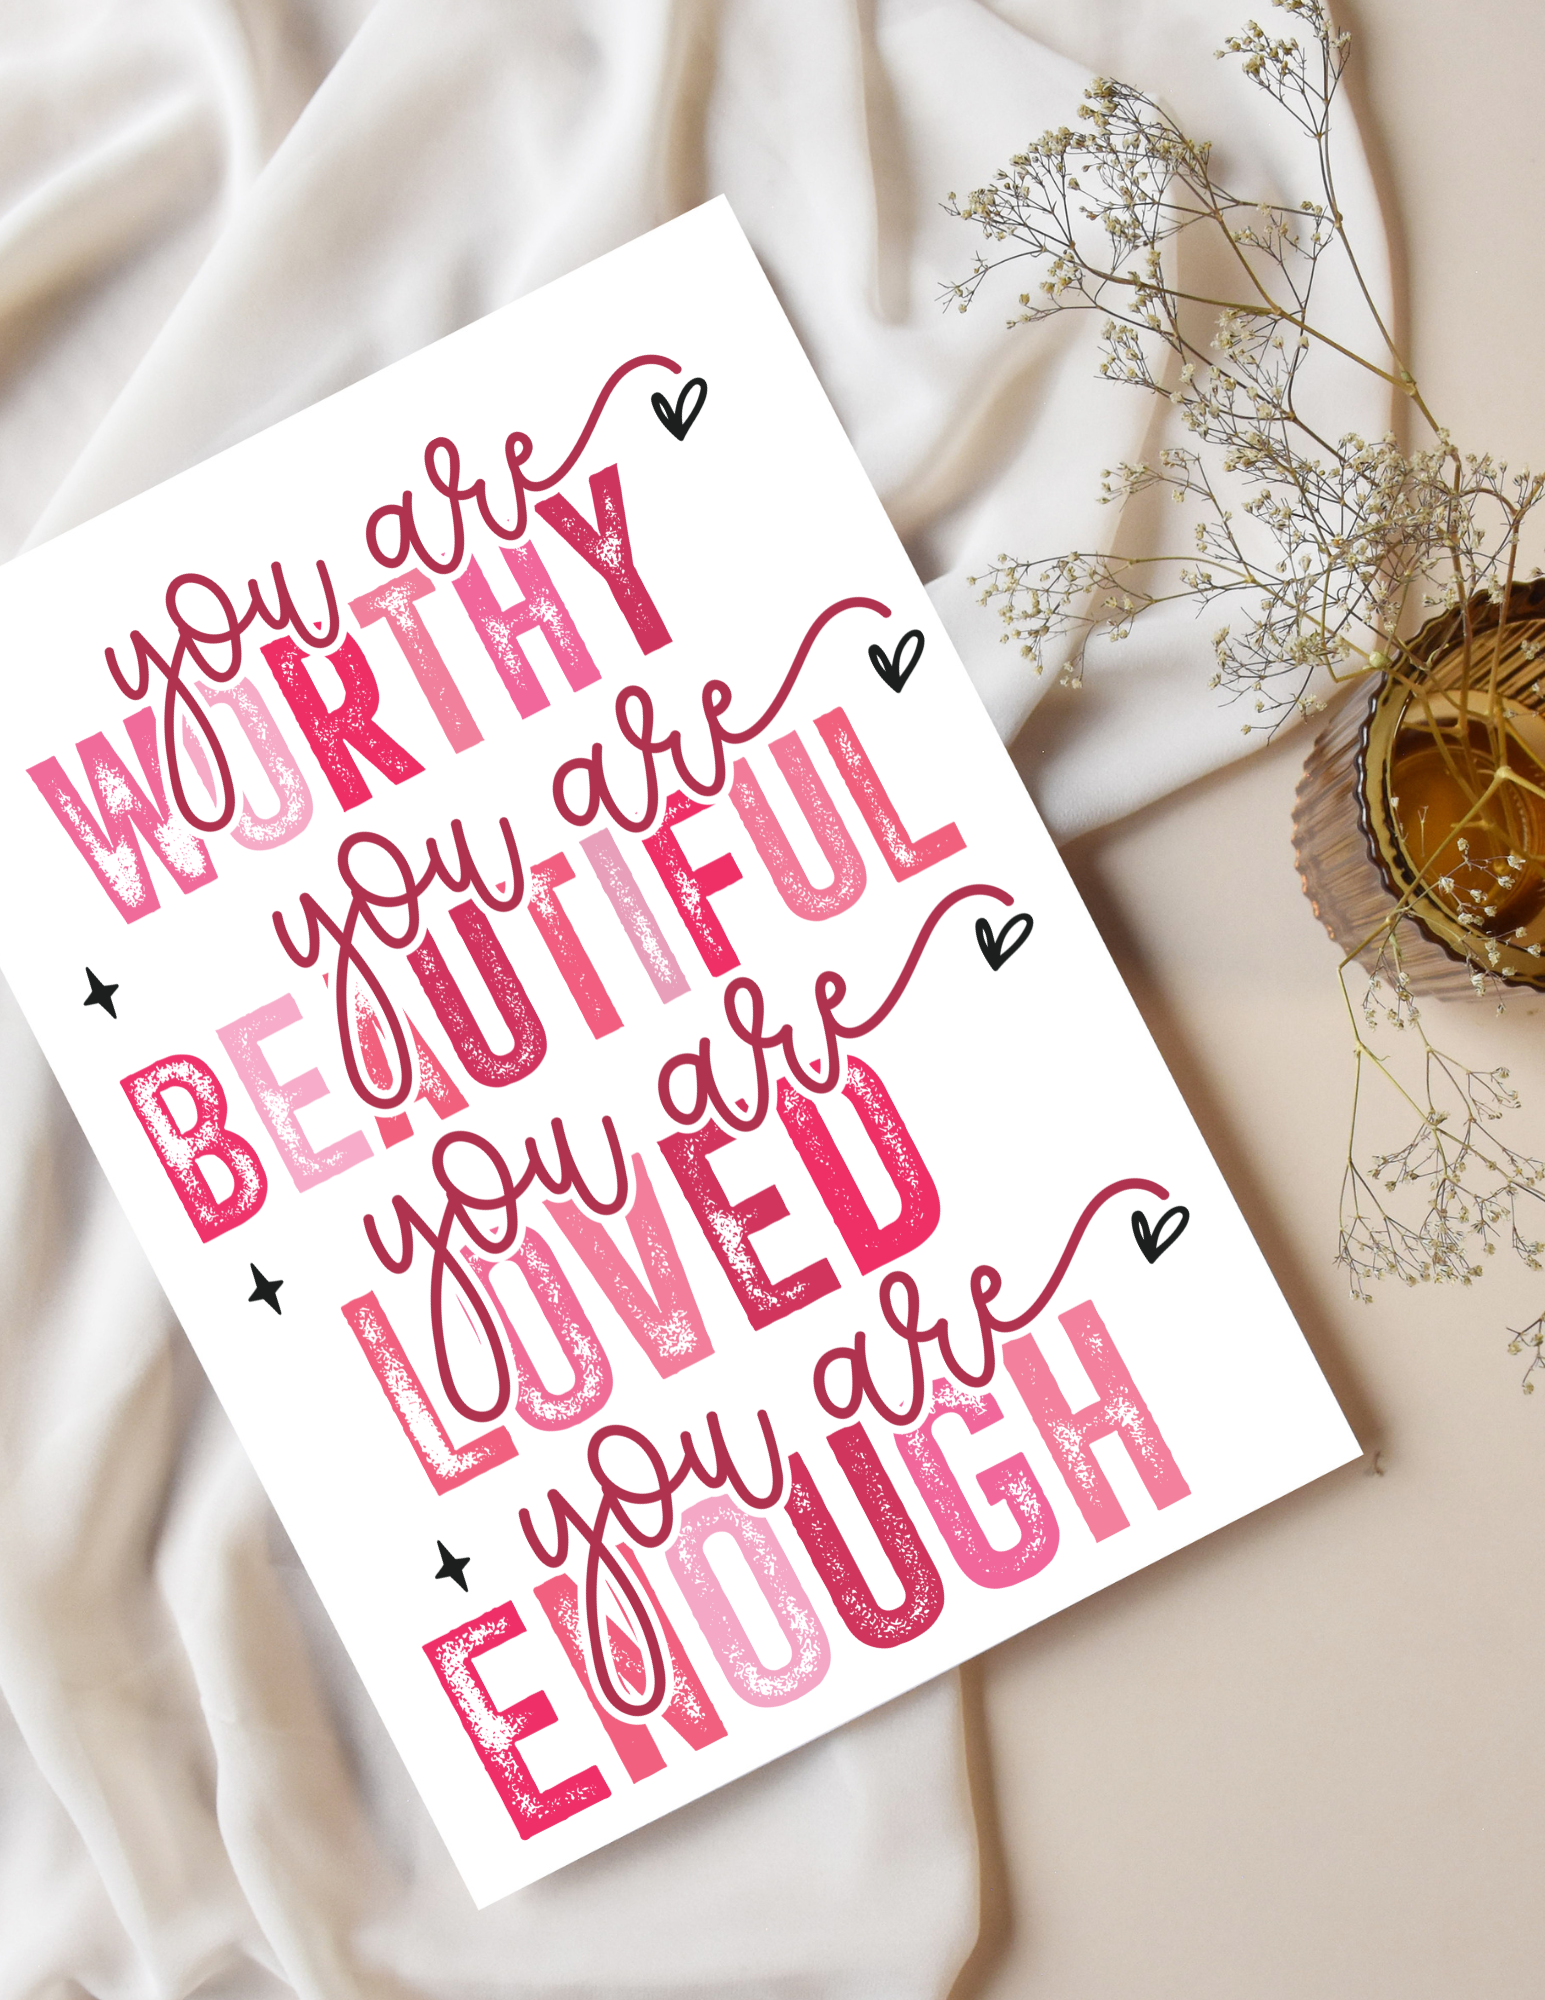 you are
WORTHY
you are
BEAUTIFUL
you are
LOVED
you are
ENOUGH